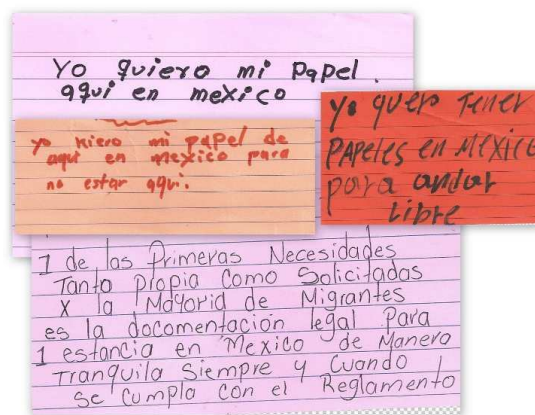 Yo quiero mi papel.
aqui en mexico
yo kiero mi papel de
aqui en mexico para
no estar aqui.
yo quero Tener
PAPELES en MEXICO
para andar
Libre
1 de las Primeras Necesidades
Tanto propia Como Solicitadas
X la Mayoria de Migrantes
es la documentación legal Para
1 estancia en Mexico de Manera
Tranquila Siempre y Cuando
Se Cumpla con el Reglamento